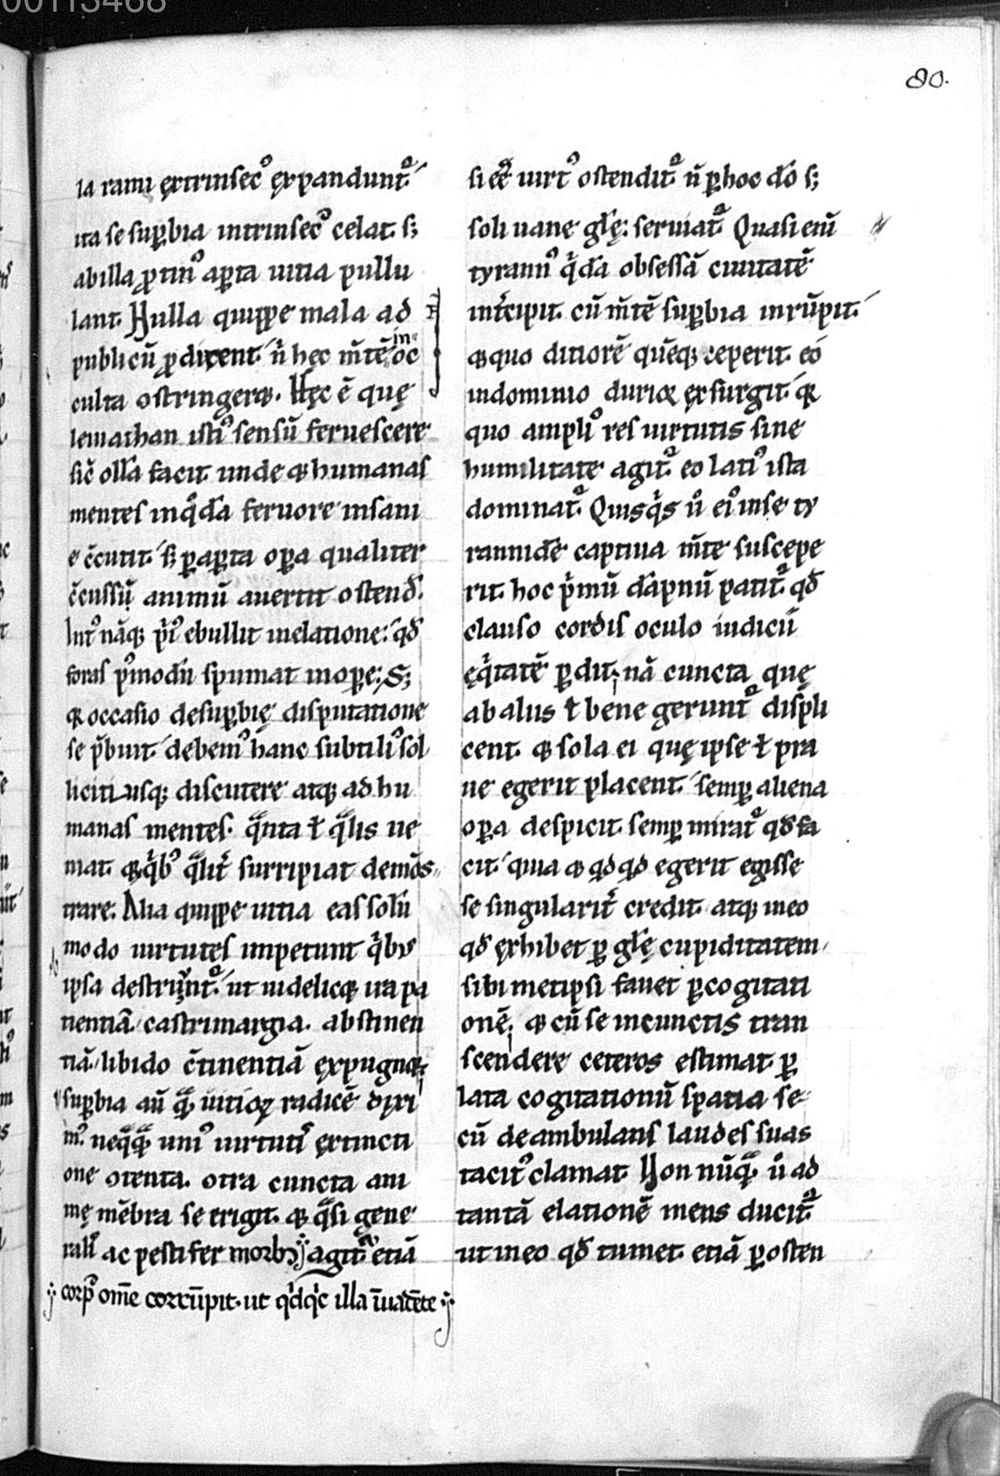 00113468
80.
la rami extrinsec⁹ ęxpandunt᷑
ita se suꝑbia intrinsec⁹ celat. s;
ab illa ꝓtin⁹ aꝑta uitia pullu
lant. Nulla quippe mala ad
publicū ꝓdirent. n̄ hęc m̄tē in oc
culta ↄstringeret. Hęc ē quę
leuiathan isti⁹ sensū feruescere
sic̄ ollā facit. unde ⁊ humanas
mentes in q̊dā feruore insani
e ↄ̄cutit. s; ꝑ aꝑta oꝑa qualiter
ↄ̄cussū animū auertit ostend̄.
Int⁹ nāq; pⁱ⁹ ebullit in elatione. qd̄
foras p⁹modū spumat in oꝑe. S;
q̄ occasio de suꝑbię disputatione
se p̄buit. debem⁹ hanc subtili⁹ sol
liciti usq; discutere atq; ad hu
manas mentes. qᵃnta ł qᵃlis ue
mat. ⁊ qⁱb⁹ qᵃlit᷑ surripiat demōs
trare. Alia quippe uitia eas solū
modo uirtutes impetunt qⁱbus
ipsa destruunt᷑. ut uidelicet ira pa
tientiā. castrimargia. abstinen
tiā. libido ↄ̄tinentiā expugnet.
suꝑbia aū quā uitioꝝ radicē dixi
m⁹. neqᵃquā uni⁹ uirtutis extincti
one ↄtenta. ↄtra cuncta ani
mę mēbra se erigit. ⁊ qᵃsi gene
ralis ac pestifer morb⁹ agit᷑ etiā
corp⁹ om̄e corrūpit. ut qⁱdqⁱd illa īuadēte
si eē uirt⁹ ostendit᷑ n̄ ꝑ hoc dō s;
soli uane glę. seruiat᷑. Quasi enī
tyrann⁹ qⁱdā obsessā ciuitatē
int᷑cipit. cū m̄tē suꝑbia inrūpit.
⁊ quo ditiorē quēq; ceperit. eo
in dominio durior exsurgit. q̄
quo ampli⁹ res uirtutis sine
humilitate agit᷑. eo lati⁹ ista
dominat᷑. Quisqⁱs ū ei⁹ in se ty
rannidē captiua m̄te suscepe
rit. hoc p̄mū dāpnū patit᷑. qd̄
clauso cordis oculo iudicii
ęqⁱtatē ꝑdit. nā cuncta quę
ab aliis ł bene gerunt᷑ displi
cent. ⁊ sola ei quę ipse ł pra
ue egerit placent. semꝑ aliena
oꝑa despicit. semꝑ mirat᷑ qd̄ fa
cit. quia ⁊ qd̄qd̄ egerit egisse
se singularit᷑ credit. atq; in eo
qd̄ exhibet ꝑ glę cupiditatem.
sibimetipsi fauet ꝑ cogitati
onē. ⁊ cū se in cunctis tran
scendere ceteros estimat. ꝑ
lata cogitationū spatia se
cū deambulans laudes suas
tacit⁹ clamat. Non nūquā ū ad
tantā elationē mens ducit᷑
ut in eo qd̄ tumet. etiā ꝑ osten